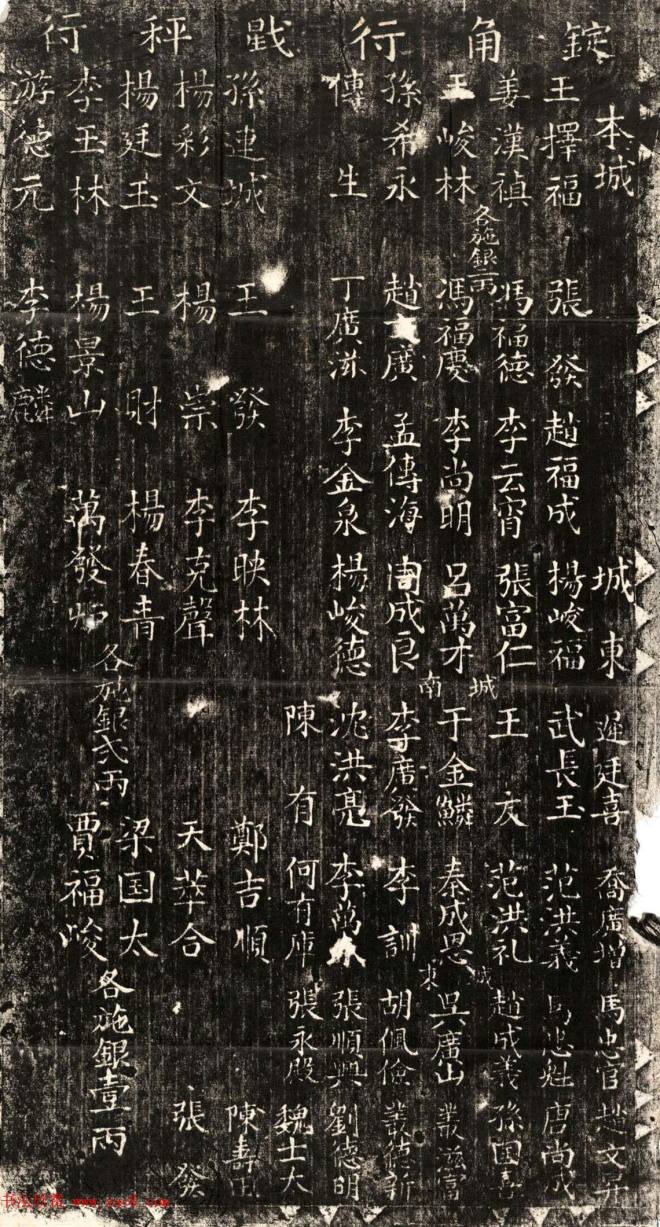 錠角行
戥秤行
本城 城東 遲廷喜 喬廣增 馬忠官 趙文升
王擇福 張發 趙福成 楊峻福 武長玉 范洪義 馬忠魁 唐尚成
姜漢禎 馮福德 李云宵 張富仁 王友 范洪礼 趙成義 孫国
各施銀二両 城南 城東
王峻林 馮福慶 李尚明 呂萬才 于金鱗 秦成恩 吳廣山 叢滋
孫希永 趙 廣 孟傳海 周成良 李廣發 李訓 胡佩儉 叢德新
傳生 丁廣滋 李金泉 楊峻德 沈洪亮 李萬 張順興 劉德明
陳有 何有庫 張永殿 魏士大
孫連城 王發 李映林 鄭吉順 陳壽
楊彩文 楊崇 李克聲 天萃合 張發
楊廷玉 王財 楊春青 梁国太
各施銀弍両 各施銀壹両
李玉林 楊景山 萬發 賈福峻
游德元 李德麟
书法欣赏 www.yac8.com